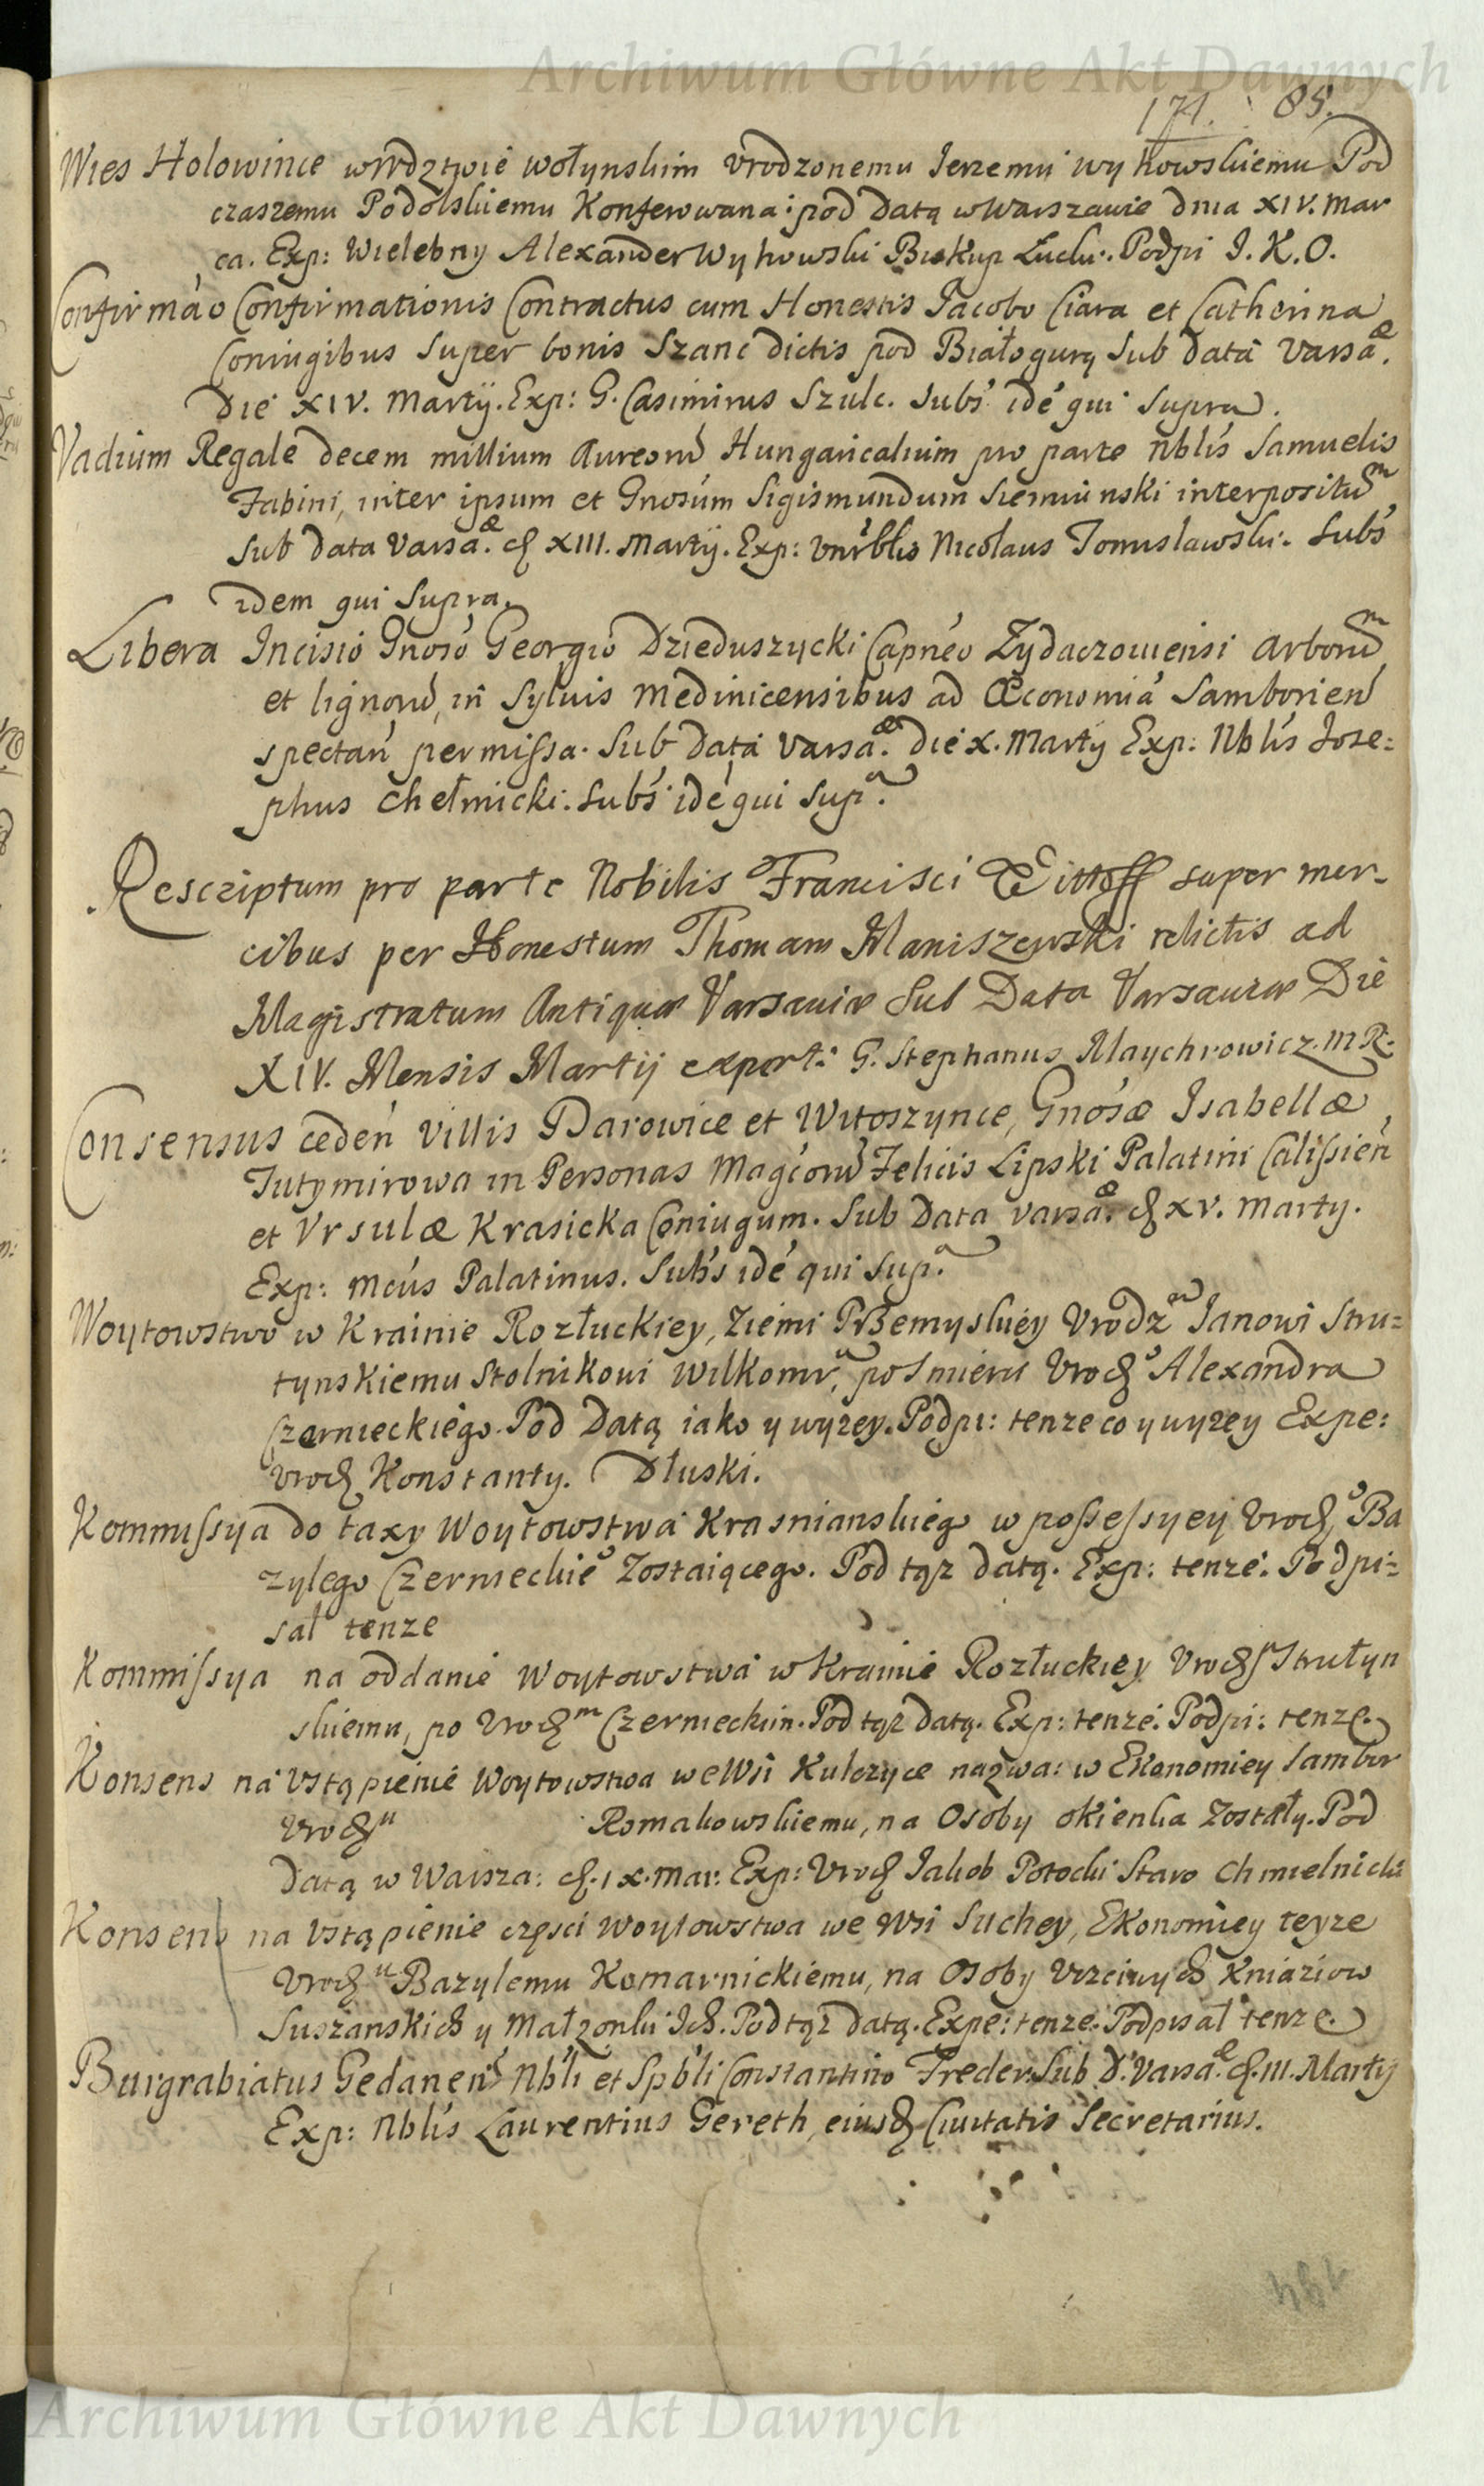 Archiwum Główne Akt Dawnych
171. 85.
Wies Holowince wWdztwie wołynskim Vrodzonemu Ierzemu Wyhowskiemu Pod
czaszemu Podolskiemu Konferowana: pod Datą w Warszawie dnia XIV. Mar
ca. Exp: Wielebny Alexander Wyhowski Biskup Łucki. Podpi I. K. O.
Confirmao Confirmationis Contractus cum Honestis Iacobo Ciara et Catherina
Coniugibus super bonis Szanc dictis pod Białogurą Sub data Varsaæ.
Die XIV. Martij. Exp: G. Casimirus Szulc. Subs ide qui supra.
Vadium Regale decem millium Aureorum Hungaricalium pro parte Nblis Samuelis
Fabini, inter ipsum et Gnosum Sigismundum Siemiunski interpositum
Sub Data Varsaæ. d XIII. Martij. Exp: Vnrblis Nicolaus Tomislawski. Subs
idem qui Supra.
Libera Incisio Gnoso Georgio Dzieduszycki Capneo Zydaczowiensi Arborum
et lignorum, in Sylvis Medinicensibus ad Œconomia Samborien
spectan permissa. Sub Data Varsaæ. Die X. Martij Exp: Nblis Iose=
phus Chełmicki. Subs ide qui supa.
Rescriptum pro parte Nobilis Francisci Wittoff super mer-
cibus per Honestum Thomam Maniszewski relictis ad
Magistratum Antiquæ Varsaviæ Sub Data Varsaviæ Die
XIV. Mensis Martij export: G. Stephanus Maychrowicz. M R.
Consensus ceden Villis Darowice et Witoszynce, Gnosæ Isabellæ
Tutymirowa in Personas Magcorum Felicis Lipski Palatini Calissien
et Vrsulæ Krasicka Coniugum. Sub Data Varsaæ. d XV. Martij.
Exp: Mcus Palatinus. Subs ide qui supa.
Woytowstwo w Krainie Rozłuckiey, Ziemi Przemyskiey Vrodzm Ianowi Stru=
tynskiemu Stolnikowi Wilkomr, po Smierci Vrodo Alexandra
Czernieckiego. Pod Datą iako y wyzey. Podpi: tenze co y wyzey Expe:
Vrod Konstanty. Dłuski.
Kommissya do taxy Woytowstwa Krasnianskiego w possessyey Vrodo Ba
zylego Czernieckieo Zostaiącego. Pod tąz datą. Exp: tenze. Podpi=
sał tenze
Kommissya na oddanie Woytowstwa w Krainie Rozłuckiey Vrod Strutyn
skiemu, po Vrodm Czernieckim. Pod tąz datą. Exp: tenze. Podpi: tenze.
Konsens na Vstąpienie Woytowstwa we Wsi Kulczyce nazwa: w Ekonomiey Sambor
Vrodu Romakowskiemu, na Osoby okienka Zostały. Pod
Datą w Warsza: d. IX. Mar. Exp: Vrod Iakob Potocki Staro Chmielnicki
Konsens na Vstąpienie części Woytowstwa we Wsi Suchey, Ekonomiey teyze
Vrodu Bazylemu Komarnickiemu, na Osoby Vczciwych Kniaziow
Suszanskich y Małzonki Ich. Pod tąz datą. Expe: tenze. Podpisał tenze.
Burgrabiatus Gedanens Nbli et Spbli Constantino Freder. Sub D. Varsaæ. d. III. Martij
Exp: Nblis Laurentius Gereth, eiusd Civitatis Secretarius.
Archiwum Główne Akt Dawnych